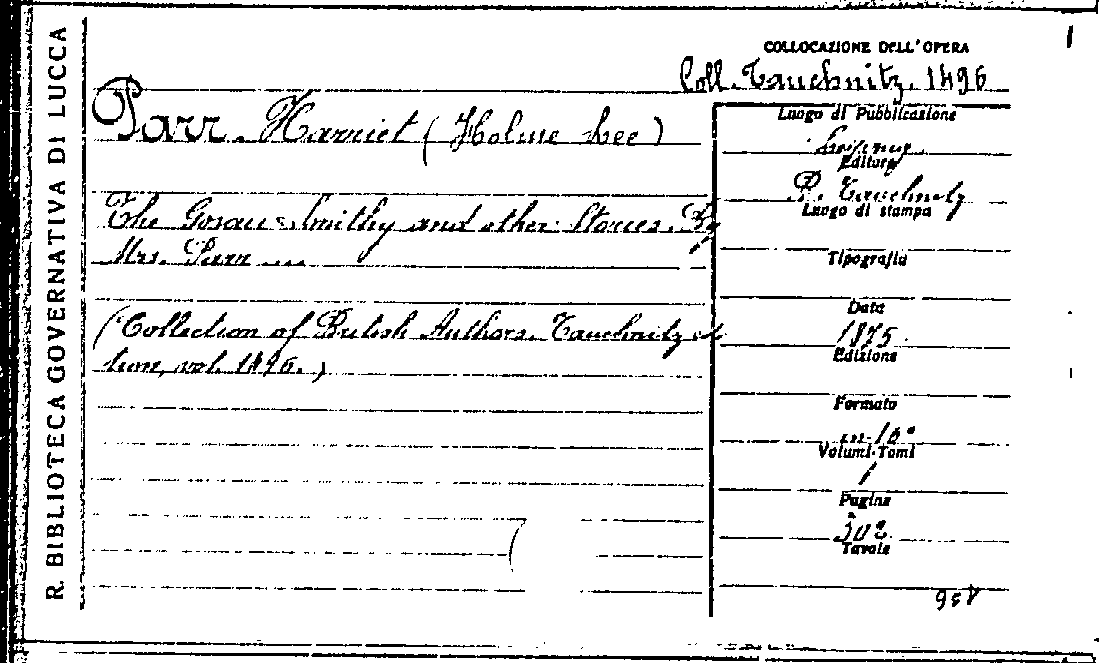 R. BIBLIOTECA GOVERNATIVA DI LUCCA
COLLOCAZIONE DELL'OPERA
Coll. Tauchnitz. 1496
Parr. Harriet (Holme Lee)
The Gosau Smithy and other Stories. By
Mrs. Parr ....
(Collection of British Authors. Tauchnitz
vol. 1496.)
Luogo di Pubblicazione
Editore
B. Tauchnitz
Luogo di stampa
Tipografia
Data
1875
Edizione
Formato
in-16°
Volumi-Tomi
1
Pagine
302
Tavole